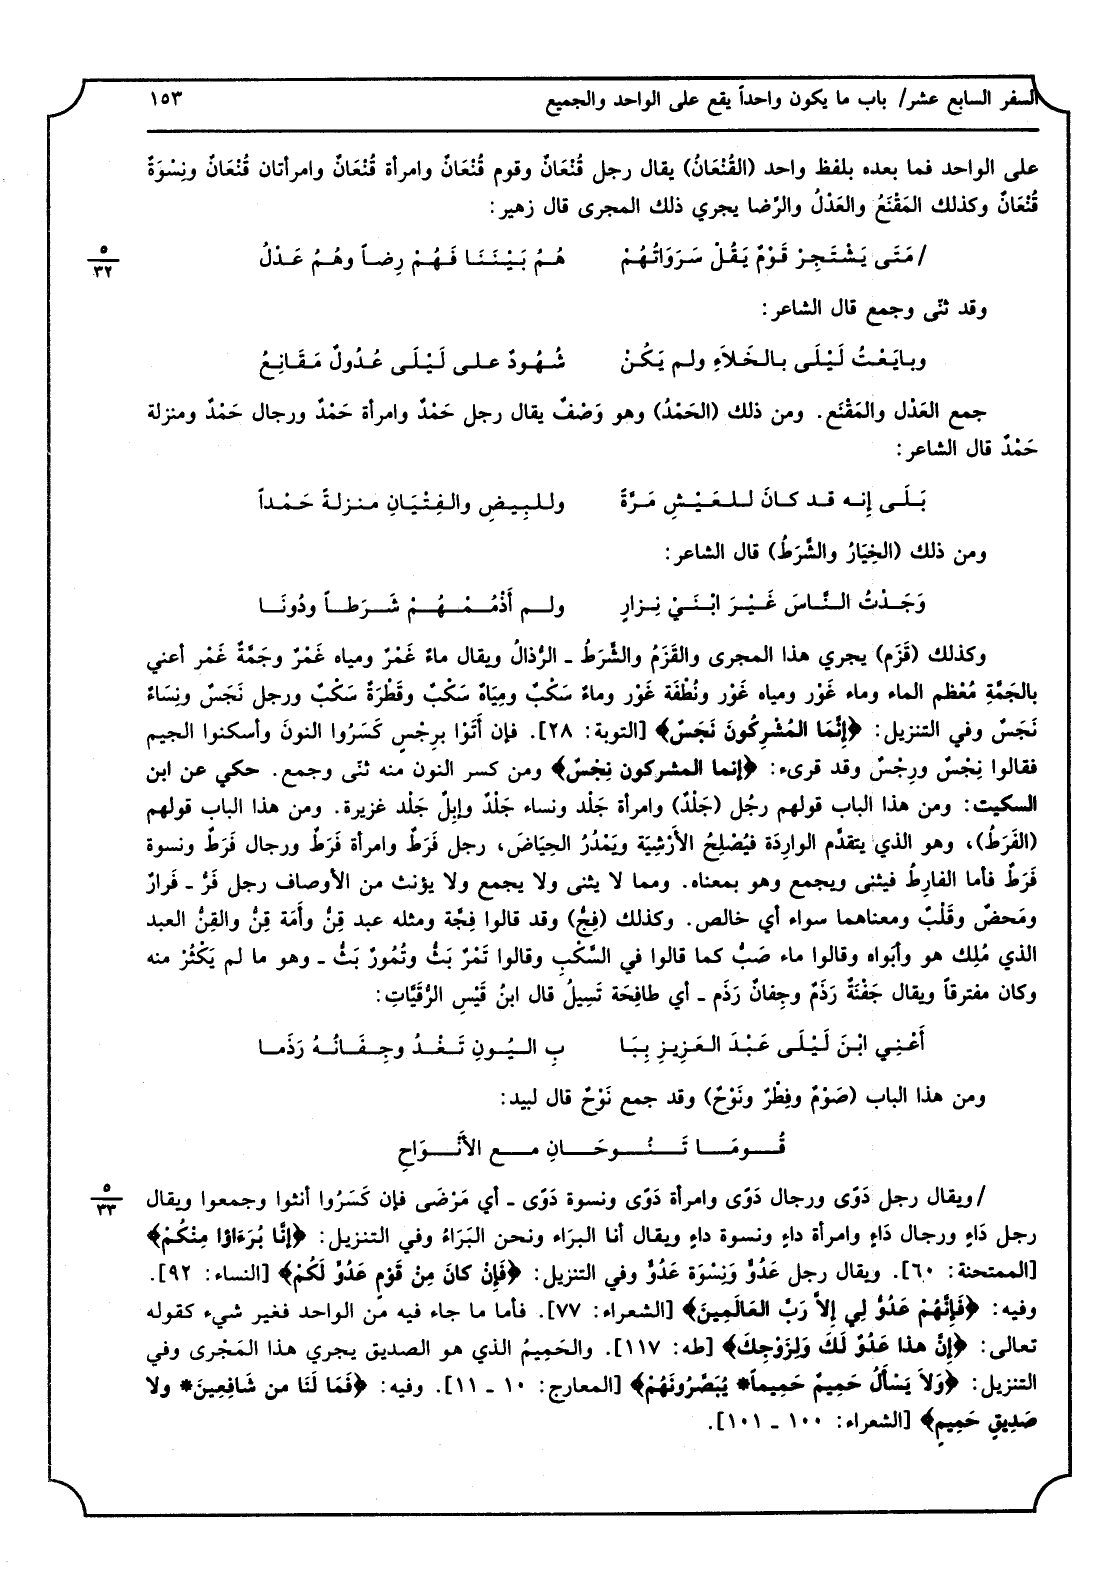 السفر السابع عشر/ باب ما يكون واحداً يقع على الواحد والجميع ١٥٣
على الواحد فما بعده بلفظ واحد (القُنْعَانُ) يقال رجل قُنْعَانٌ وقوم قُنْعَانٌ وامرأة قُنْعَانٌ وامرأتان قُنْعَانٌ ونِسْوَةٌ
قُنْعَانٌ وكذلك المَقْنَعُ والعَدْلُ والرِّضا يجري ذلك المجرى قال زهير:
/ مَتَى يَشْتَجِرْ قَوْمٌ يَقُلْ سَرَوَاتُهُمْ هُمُ بَيْنَنَا فَهُمْ رِضاً وهُمُ عَدْلُ
٥
٣٢
وقد ثنّى وجمع قال الشاعر:
وبايَعْتُ لَيْلَى بالخَلاَءِ ولم يَكُنْ شُهُودٌ على لَيْلَى عُدُولٌ مَقَانِعُ
جمع العَدْل والمَقْنَع. ومن ذلك (الحَمْدُ) وهو وَصْفٌ يقال رجل حَمْدٌ وامرأة حَمْدٌ ورجال حَمْدٌ ومنزلة
حَمْدٌ قال الشاعر:
بَلَى إنه قد كانَ للعَيْشِ مَرَّةً وللبِيضِ والفِتْيَانِ منزلةً حَمْداً
ومن ذلك (الخِيَارُ والشَّرَطُ) قال الشاعر:
وَجَدْتُ النَّاسَ غَيْرَ ابْنَيْ نِزارٍ ولم أَذْمُمْهُمْ شَرَطاً ودُونَا
وكذلك (قَزَم) يجري هذا المجرى والقَزَمُ والشَّرَطُ ـ الرُّذالُ ويقال ماءٌ غَمْرٌ ومياه غَمْرٌ وجَمَّةٌ غَمْر أعني
بالجَمَّةِ مُعْظم الماء وماء غَوْر ومياه غَوْر ونُطْفَة غَوْر وماءٌ سَكْبٌ ومِيَاهٌ سَكْبٌ وقَطْرَةٌ سَكْبٌ ورجل نَجَسٌ ونِسَاءٌ
نَجَسٌ وفي التنزيل: ﴿إِنَّمَا المُشْرِكُونَ نَجَسٌ﴾ [التوبة: ٢٨]. فإن أَتَوْا برِجْسٍ كَسَرُوا النونَ وأسكنوا الجيم
فقالوا نِجْسٌ ورِجْسٌ وقد قرىء: ﴿إنما المشركون نِجْسٌ﴾ ومن كسر النون منه ثنّى وجمع. حكي عن ابن
السكيت: ومن هذا الباب قولهم رجُل (جَلْدٌ) وامرأة جَلْد ونساء جَلْدٌ وإبِلٌ جَلْد غزيرة. ومن هذا الباب قولهم
(الفَرَطُ)، وهو الذي يتقدَّم الوارِدَة فيُصْلِحُ الأَرْشِيَة ويَمْدُرُ الحِيَاضَ، رجل فَرَطٌ وامرأة فَرَطٌ ورجال فَرَطٌ ونسوة
فَرَطٌ فأما الفارِطُ فيثنى ويجمع وهو بمعناه. ومما لا يثنى ولا يجمع ولا يؤنث من الأوصاف رجل فَرٌّ ـ فَرارٌ
ومَحضٌ وقَلْبٌ ومعناهما سواء أي خالص. وكذلك (فِجٌّ) وقد قالوا فِجَّة ومثله عبد قِنٌّ وأَمَة قِنٌّ والقِنُّ العبد
الذي مُلِك هو وأبَواه وقالوا ماء صَبٌّ كما قالوا في السَّكْبِ وقالوا تَمْرٌ بَثٌّ وتُمُورٌ بَثٌّ ـ وهو ما لم يَكْثُرْ منه
وكان مفترقاً ويقال جَفْنَةٌ رَذَمٌ وجِفانٌ رَذَم ـ أي طافِحَة تَسِيلُ قال ابنُ قَيْسِ الرُّقَيَّاتِ:
أَعْنِي ابْنَ لَيْلَى عَبْدَ العَزِيزِ بِبَا بِ اليُونِ تَغْدُ وجِفَانُهُ رَذَما
ومن هذا الباب (صَوْمٌ وفِطْرٌ ونَوْحٌ) وقد جمع نَوْحٌ قال لبيد:
قُومَا تَنُوحَانِ مع الأَنْوَاحِ
/ ويقال رجل دَوًى ورجال دَوًى وامرأة دَوًى ونسوة دَوًى ـ أي مَرْضَى فإن كَسَرُوا أنثوا وجمعوا ويقال
٥
٣٣
رجل دَاءٍ ورجال دَاءٍ وامرأة داءٍ ونسوة داءٍ ويقال أنا البرَاء ونحن البَرَاءُ وفي التنزيل: ﴿إنَّا بُرَءَاؤا مِنْكُمْ﴾
[الممتحنة: ٦٠]. ويقال رجل عَدُوٌّ وَنِسْوَة عَدُوٌّ وفي التنزيل: ﴿فَإِنْ كانَ مِنْ قَوْمٍ عَدُوٍّ لَكُمْ﴾ [النساء: ٩٢].
وفيه: ﴿فَإِنَّهُمْ عَدُوٌّ لِي إلاَّ رَبَّ العَالَمِينَ﴾ [الشعراء: ٧٧]. فأما ما جاء فيه من الواحد فغير شيء كقوله
تعالى: ﴿إنَّ هذا عَدُوٌ لَكَ وَلِزَوْجِكَ﴾ [طه: ١١٧]. والحَمِيمُ الذي هو الصديق يجري هذا المَجْرى وفي
التنزيل: ﴿وَلاَ يَسْأَلُ حَمِيمٌ حَمِيماً* يُبَصَّرُونَهُمْ﴾ [المعارج: ١٠ ـ ١١]. وفيه: ﴿فَمَا لَنَا من شَافِعِينَ* ولا
صَدِيقٍ حَمِيمٍ﴾ [الشعراء: ١٠٠ ـ ١٠١].